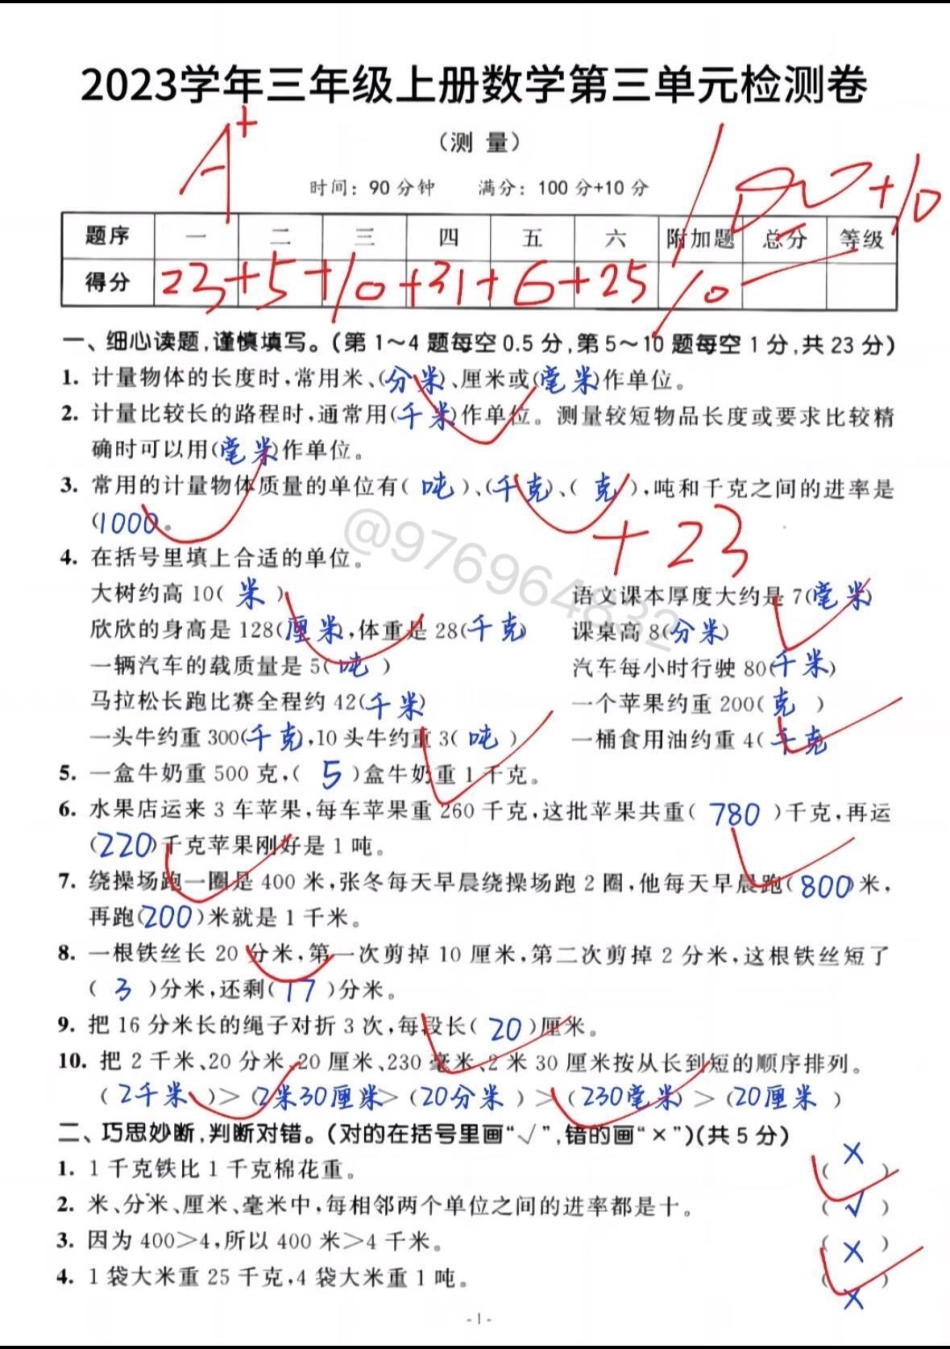 2023学年三年级上册数学第三单元检测卷
(测 量)
A+
时间：90分钟 满分：100分+10分
100+10
题序 一 二 三 四 五 六 附加题 总分 等级
得分 23+5+10+31+6+25 10
一、细心读题,谨慎填写。(第1～4题每空0.5分,第5～10题每空1分,共23分)
1. 计量物体的长度时,常用米、(分米)、厘米或(毫米)作单位。
2. 计量比较长的路程时,通常用(千米)作单位。测量较短物品长度或要求比较精
确时可以用(毫米)作单位。
3. 常用的计量物体质量的单位有( 吨 )、(千克)、( 克 ),吨和千克之间的进率是
(1000。
+23
@976964832
4. 在括号里填上合适的单位。
大树约高10( 米 ) 语文课本厚度大约是7(毫米)
欣欣的身高是128(厘米),体重是28(千克) 课桌高8(分米)
一辆汽车的载质量是5( 吨 ) 汽车每小时行驶80(千米)
马拉松长跑比赛全程约42(千米) 一个苹果约重200( 克 )
一头牛约重300(千克),10头牛约重3( 吨 ) 一桶食用油约重4(千克
5. 一盒牛奶重500克,( 5 )盒牛奶重1千克。
6. 水果店运来3车苹果,每车苹果重260千克,这批苹果共重( 780 )千克,再运
(220)千克苹果刚好是1吨。
7. 绕操场跑一圈是400米,张冬每天早晨绕操场跑2圈,他每天早晨跑(800)米,
再跑(200)米就是1千米。
8. 一根铁丝长20分米,第一次剪掉10厘米,第二次剪掉2分米,这根铁丝短了
( 3 )分米,还剩( 17 )分米。
9. 把16分米长的绳子对折3次,每段长( 20 )厘米。
10. 把2千米、20分米、20厘米、230毫米、2米30厘米按从长到短的顺序排列。
( 2千米 )>(2米30厘米)>(20分米 )>(230毫米)>(20厘米 )
二、巧思妙断,判断对错。(对的在括号里画“√”,错的画“×”)(共5分)
1. 1千克铁比1千克棉花重。 ( × )
2. 米、分米、厘米、毫米中,每相邻两个单位之间的进率都是十。 ( √ )
3. 因为400>4,所以400米>4千米。 ( × )
4. 1袋大米重25千克,4袋大米重1吨。 ( × )
- 1 -